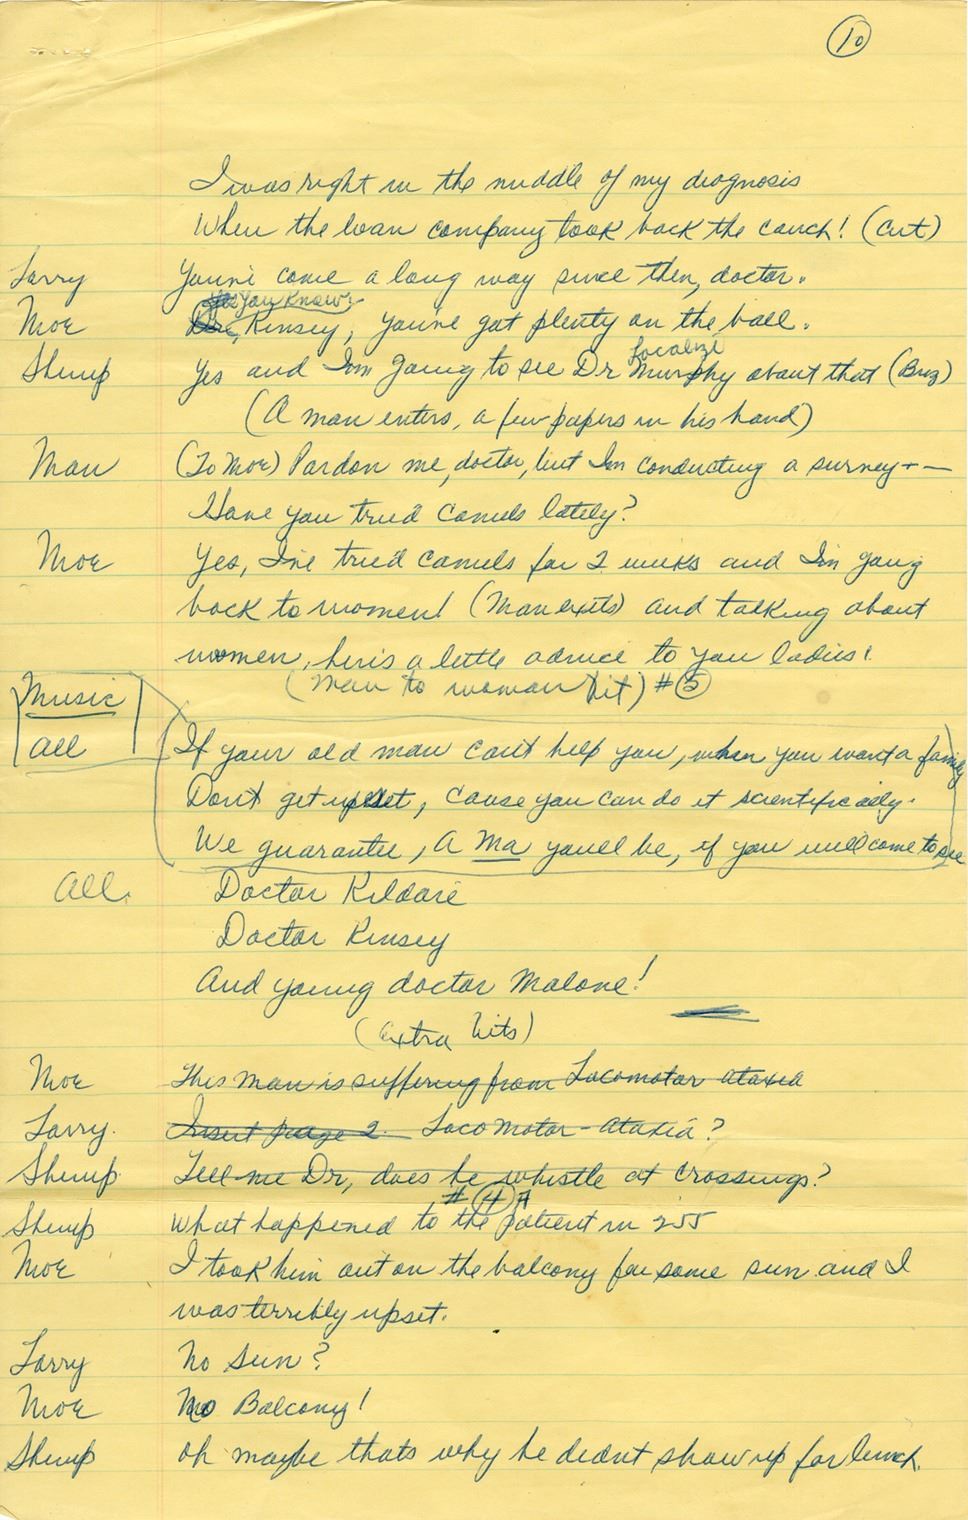 10
I was right in the middle of my diagnosis
When the loan company took back the couch! (cut)
Larry You've come a long way since then, doctor.
yes you know
Moe Dr. Kinsey, you've got plenty on the ball.
localize
Shemp Yes and I'm going to see Dr Murphy about that (Biz)
(A man enters, a few papers in his hand)
Man (To Moe) Pardon me, doctor, but I'm conducting a survey - —
Have you tried Camels lately?
Moe Yes, I've tried camels for 2 weeks and I'm going
back to women! (Man exits) and talking about
women, here's a little advice to you ladies!
(Man to woman bit) #5
Music
All If your old man can't help you, when you want a family
Don't get upset, cause you can do it scientifically.
We guarantee, A Ma you'll be, if you will come to see
All. Doctor Kildare
Doctor Kinsey
And young doctor Malone!
(extra bits)
Moe This man is suffering from Locomotor ataxia
Larry. Insert page 2 Loco Motor - Ataxia?
Shemp Tell me Dr, does he whistle at crossings?
#4A
Shemp What happened to the patient in 255
Moe I took him out on the balcony for some sun and I
was terribly upset.
Larry No Sun?
Moe No Balcony!
Shemp oh maybe thats why he didnt show up for lunch.